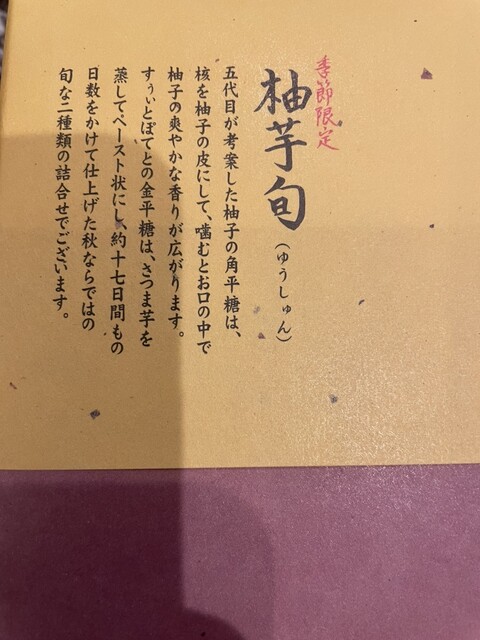 季節限定
柚芋旬
(ゆうしゅん)
五代目が考案した柚子の角平糖は、
核を柚子の皮にして、噛むとお口の中で
柚子の爽やかな香りが広がります。
すぅぃとぽてとの金平糖は、さつま芋を
蒸してペースト状にし、約十七日間もの
日数をかけて仕上げた秋ならではの
旬な二種類の詰合せでございます。